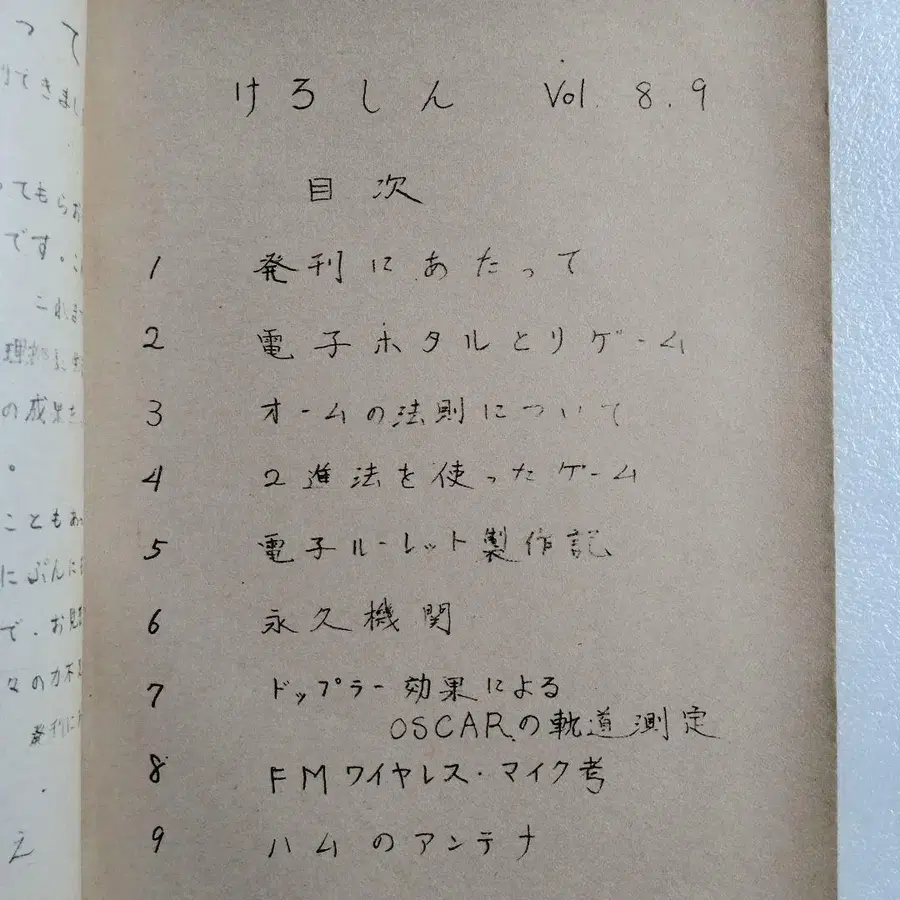 って
できまし
てもらお
です。こ
これま
の成果を
こともあ
にぶんに
で、お見
々の力不
発刊に
え
けろしん Vol. 8.9
目次
1 発刊にあたって
2 電子ホタルとりゲーム
3 オームの法則について
4 2進法を使ったゲーム
5 電子ルーレット製作記
6 永久機関
7 ドップラー効果による
OSCARの軌道測定
8 FMワイヤレス・マイク考
9 ハムのアンテナ